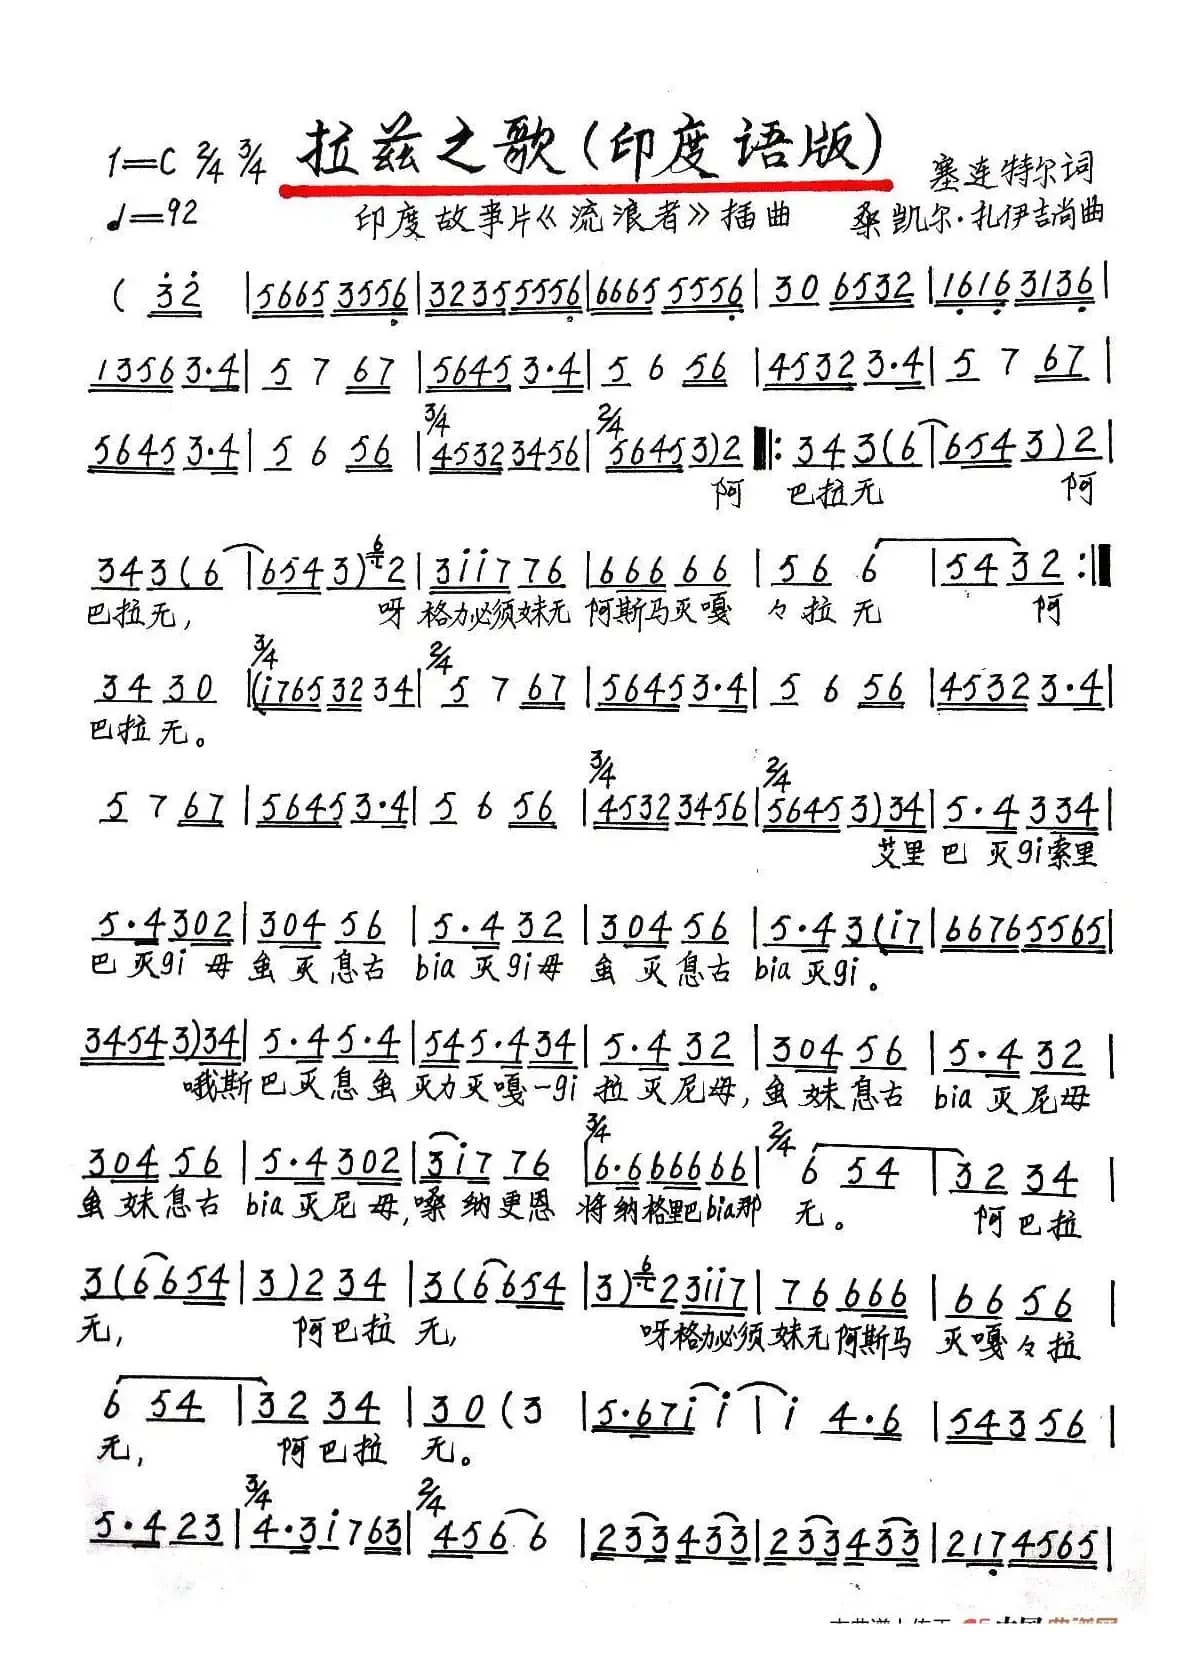 拉兹之歌(印度语版)
1=C 2/4 3/4
塞连特尔词
♩=92
印度故事片《流浪者》插曲
桑凯尔·扎伊吉尚曲
( 3̇2̇ | 5665 3556 | 3235 5556 | 6665 5556 | 30 6532 | 1616 3136 |
1356 3·4 | 5 7 67 | 5645 3·4 | 5 6 56 | 4532 3·4 | 5 7 67 |
5645 3·4 | 5 6 56 | 3/4 4532 3456 | 2/4 5645 3) 2 ‖: 343(6 | 6543) 2 |
阿 巴拉无 阿
343(6 | 6543) 2 | 3i̇i̇7 76 | 666 66 | 56 6 | 5432 :‖
巴拉无, 呀 格加必须妹无 阿斯马灭嘎 々拉无 阿
34 30 | 3/4 (i̇765 32 34 | 2/4 5 7 67 | 5645 3·4 | 5 6 56 | 4532 3·4 |
巴拉无。
5 7 67 | 5645 3·4 | 5 6 56 | 3/4 4532 3456 | 2/4 5645 3) 34 | 5·4 334 |
艾里 巴 灭gi索里
5·4 302 | 304 56 | 5·4 32 | 304 56 | 5·4 3(i̇7 | 6676 5565 |
巴 灭gi 母 虽 灭 息古 bia 灭gi母 虽 灭息古 bia 灭gi。
3454 3) 34 | 5·4 5·4 | 545·434 | 5·4 32 | 304 56 | 5·4 32 |
哦斯 巴 灭 息 虽 灭力灭嘎一gi 拉 灭尼母, 虽 妹息古 bia 灭尼母
304 56 | 5·4 302 | 3i̇7 76 | 3/4 6·6 66 66 | 2/4 6 54 | 32 34 |
虽 妹息古 bia 灭尼母, 嗓 纳更恩 将纳格里巴bia那 无。 阿巴拉
3(6 654 | 3) 2 34 | 3(6 654 | 3) 2 3i̇i̇7 | 76 666 | 66 56 |
无, 阿巴拉 无, 呀格加必须 妹无 阿斯马 灭嘎々拉
6 54 | 32 34 | 30 (3 | 5·67i̇ i̇ | i̇ 4·6 | 543 56 |
无, 阿巴拉 无。
5·4 23 | 3/4 4·3 i̇ 763 | 2/4 456 6 | 233 433 | 233 433 | 217 4565 |